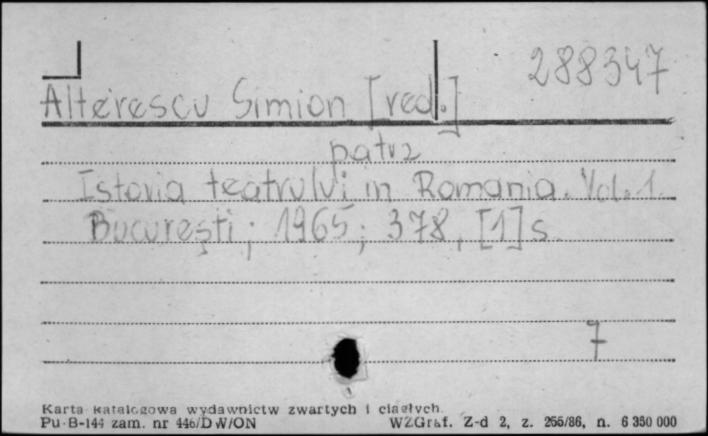 288347
Alterescu Simion [red.]
patrz
Istoria teatrului in Romania. Vol. 1.
București; 1965; 378, [1] s.
7
Karta katalogowa wydawnictw zwartych i ciągłych.
Pu-B-144 zam. nr 446/DW/ON WZGraf. Z-d 2, z. 265/86, n. 6 350 000